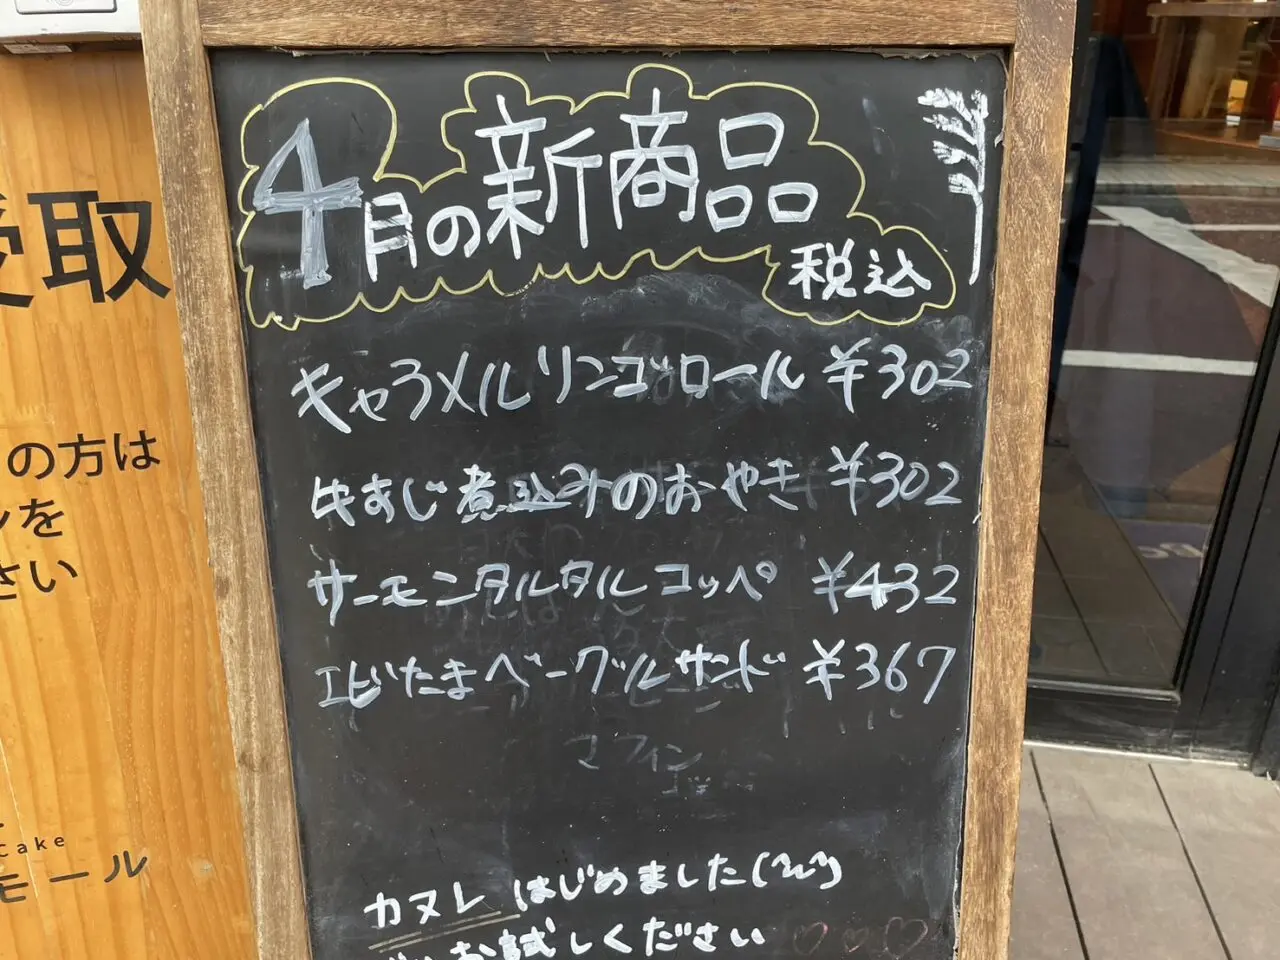 4月の新商品
税込
キャラメルリンゴロール ¥302
牛すじ煮込みのおやき ¥302
サーモンタルタルコッペ ¥432
エビたまベーグルサンド ¥367
マフィン
カヌレ はじめました
お試しください
受取
の方は
を
さい
Cake
モール